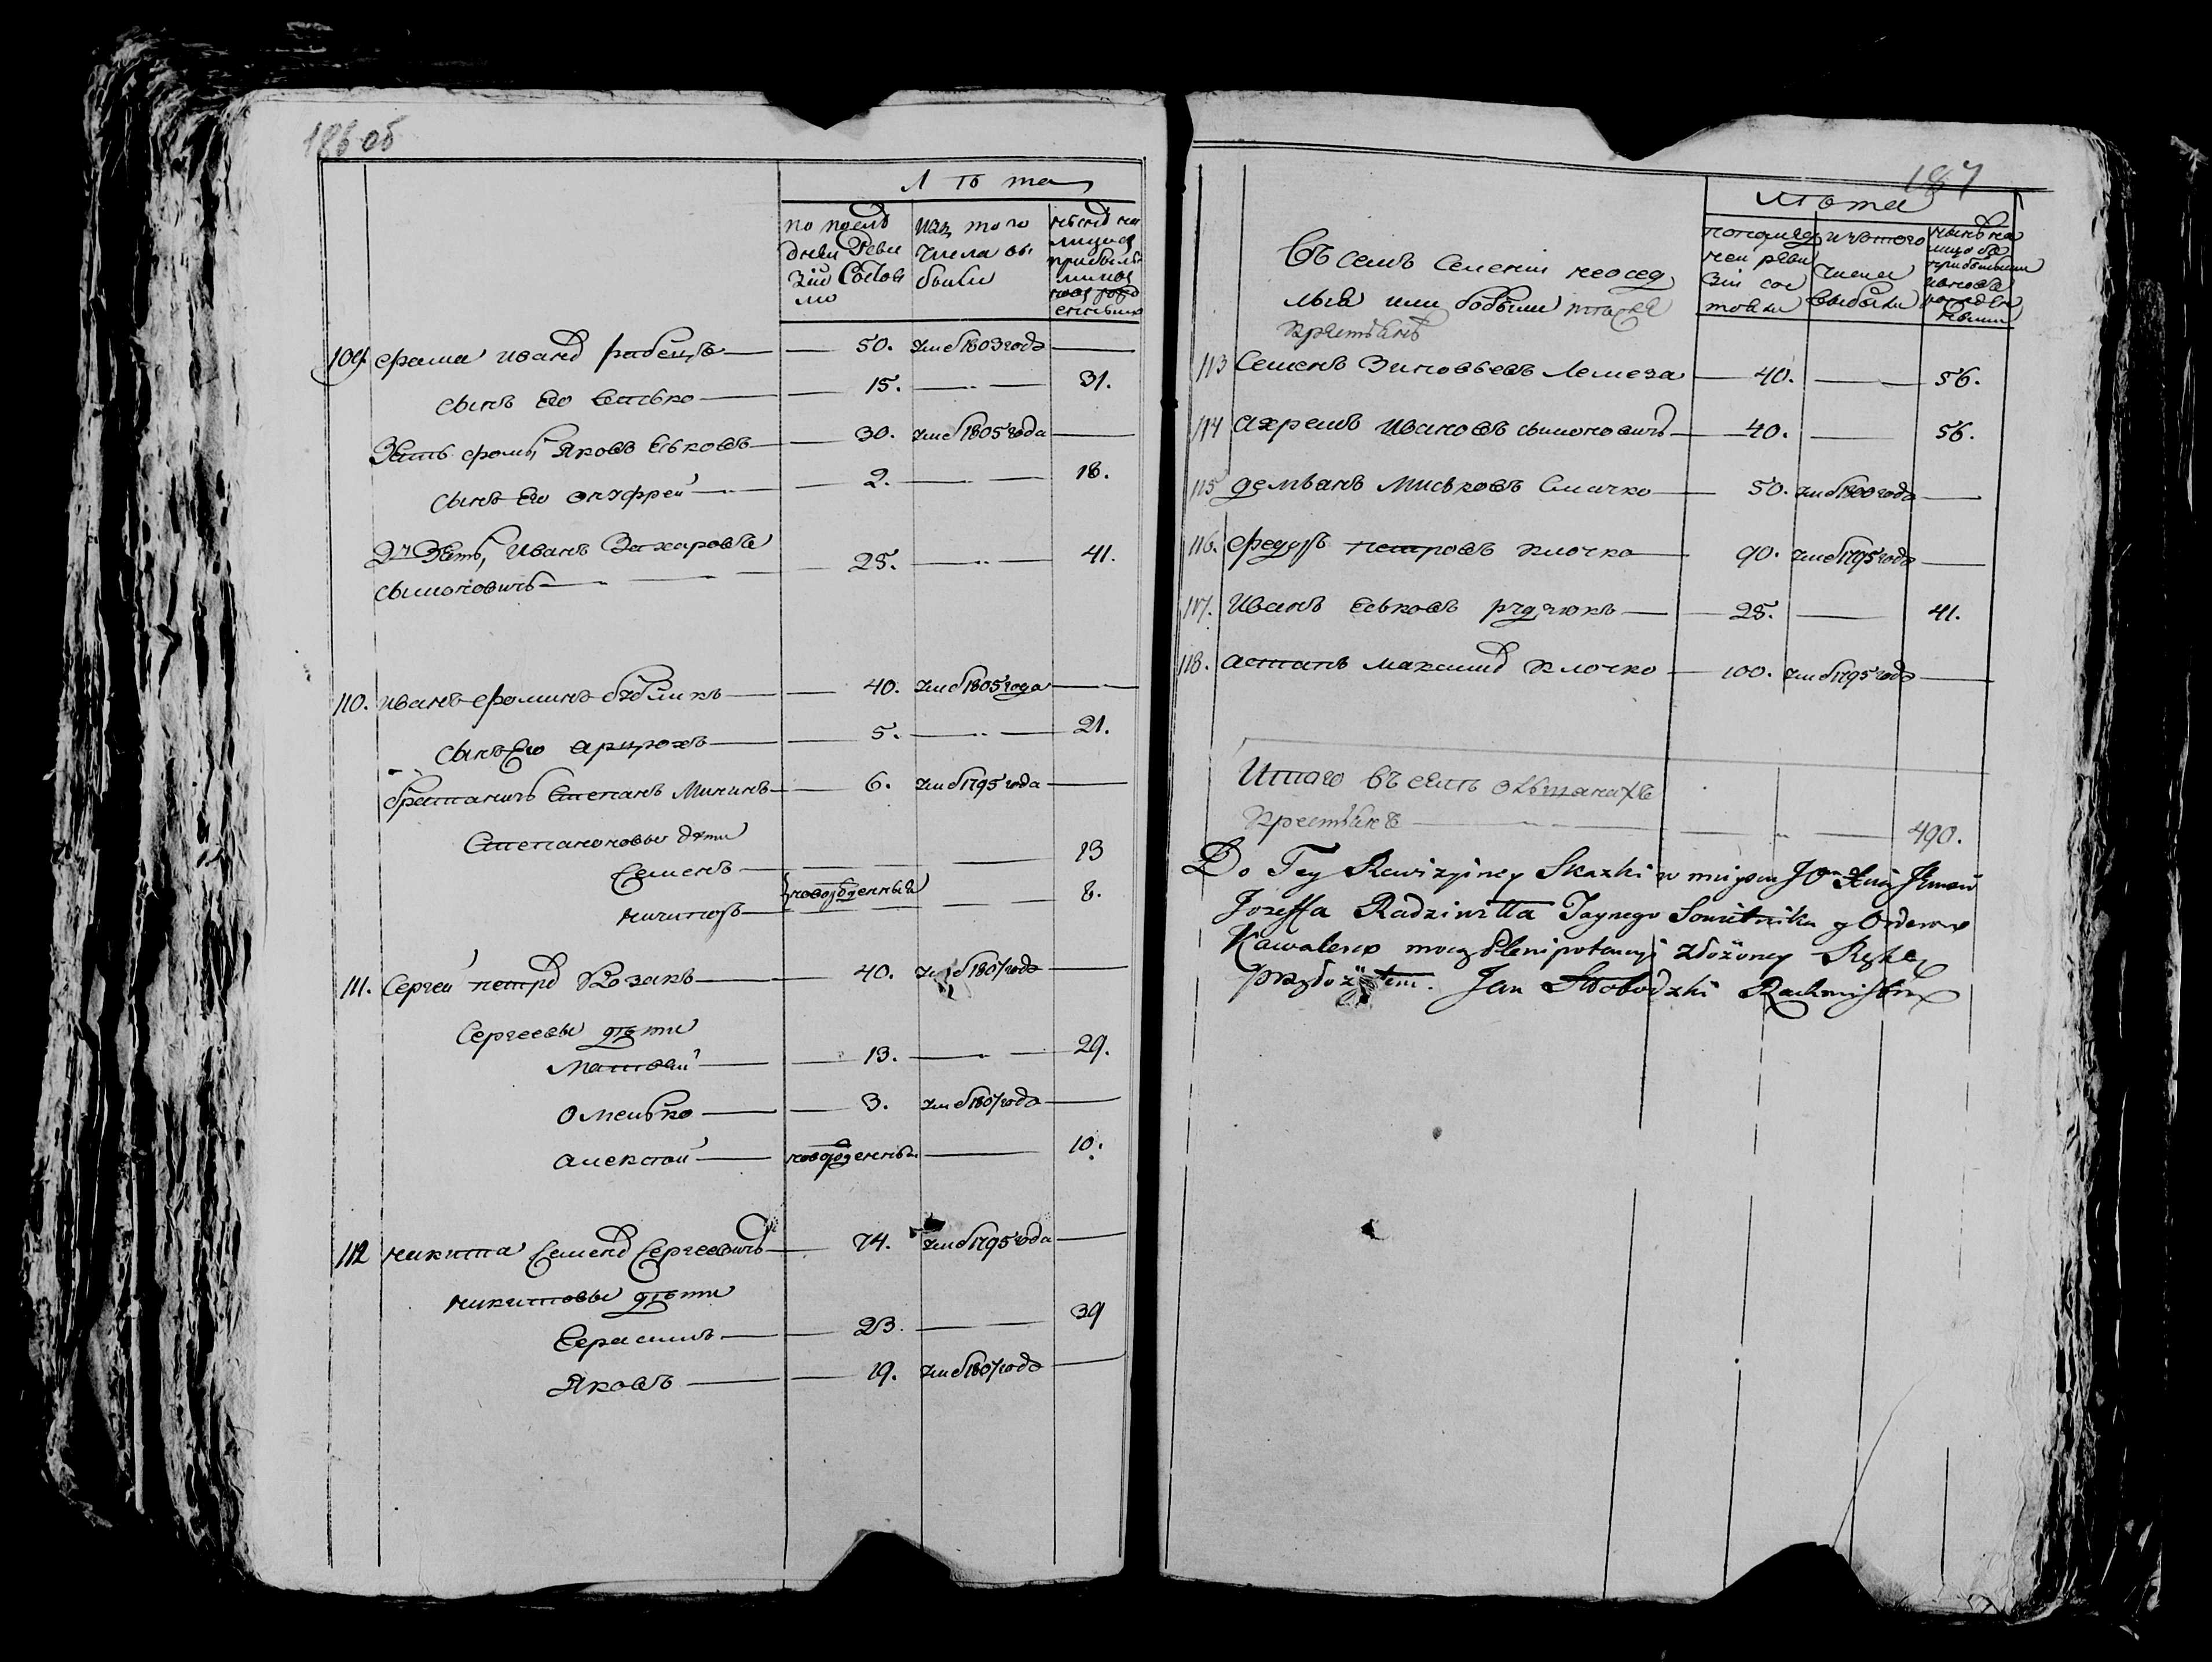 186 об
Лѣта
по послѣ
дней Реви
зіи Состоя
ло
изъ того
числа вы
были
нынѣ на
лицо съ
прибылы
ми и
новорож
денными
109. Фома Иванов Рабецъ 50. Умеб 1803 года
сынъ Его Есько 15. 31.
Зять Фомы, Яковъ Еськовъ 30. Умеб 1805 года
сынъ Его Онуфрей 2. 18.
2й Зять, Иванъ Захаровъ
сымоновичъ 25. 41.
110. Иванъ Фоминъ Бубликъ 40. Умеб 1805 года
сынъ Его 5. 21.
братаничъ Степанъ Мининъ 6. Умеб 1795 года
Степановы дѣти
Семенъ 13
новорожденный
Ничипоръ 8.
111. Сергей Петров Козакъ 40. Умеб 1807 года
Сергеевы дѣти
Матвѣй 13. 29.
Омелько 3. Умеб 1807 года
Алексѣй новорожденны 10.
112 Никита Семенов Сергеевичъ 74. Умеб 1795 года
Никитовы дѣти
Герасимъ 23. 39
Яковъ 19. Умеб 1807 года
187
Лѣта
Въ семъ Селеніи неосед
лыя или бобыли
Крестьянъ
по послед
ней реви
зіи сос
тояли
изъ того
числа
выбыли
нынѣ на
лицо съ
прибылыми
113 Семенъ Зиновьевъ Лемеза 40. 56.
114 Ахремъ Ивановъ сымоновичъ 40. 56.
115 Демьянъ Миськовъ Сличко 50. Умеб 1800 года
116. Федоръ Петровъ Клочко 90. Умеб 1795 года
117. Иванъ Еськовъ Рудчюкъ 25. 41.
118. Астапъ Максимов Клочко 100. Умеб 1795 года
Итого въ
Крестьянъ 490.
Do Tey Rewizyiney Skazki w mieyscu JO
Jozeffa Radziwiłła Taynego Sowietnika y Orderow
Kawalera mocą Plenipotencyi złożoney Rękę
przyłożyłem. Jan Słobodzki Rachmistrz